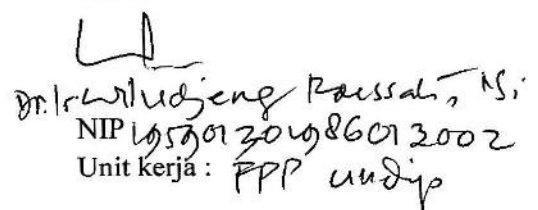 Dr. Ir. Wiludjeng Roessali, Msi
NIP 195901201986012002
Unit kerja : FPP Undip